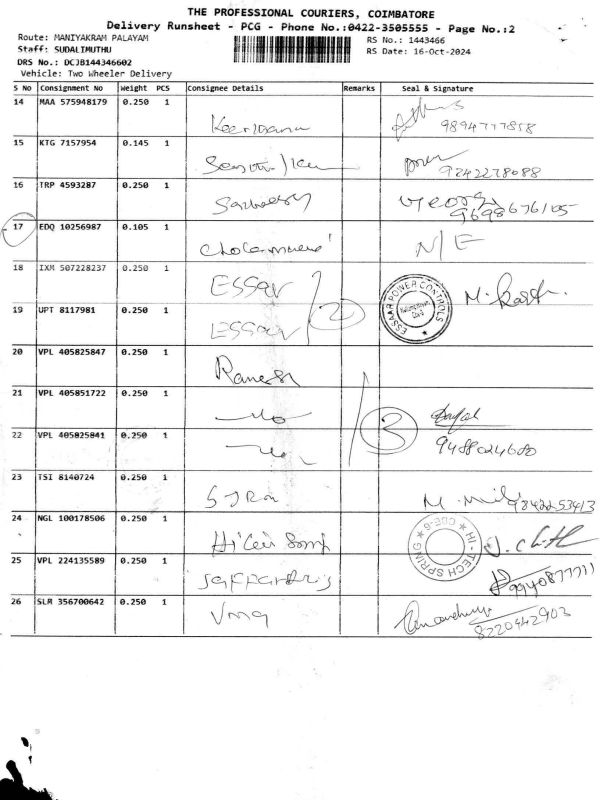 THE PROFESSIONAL COURIERS, COIMBATORE
Delivery Runsheet - PCG - Phone No.:0422-3505555 - Page No.:2
Route: MANIYAKRAM PALAYAM
RS No.: 1443466
Staff: SUDALIMUTHU
RS Date: 16-Oct-2024
DRS No.: DCJB144346602
Vehicle: Two Wheeler Delivery
S No Consignment No Weight PCS Consignee Details Remarks Seal & Signature
14 MAA 575948179 0.250 1
9894777858
15 KTG 7157954 0.145 1
9242278088
16 TRP 4593287 0.250 1
9698676105
17 EDQ 10256987 0.105 1 N/E
18 IXM 507228237 0.250 1 ESSAR
2
ESSAAR POWER CONTROLS
19 UPT 8117981 0.250 1 ESSAR
20 VPL 405825847 0.250 1 Ramesh
21 VPL 405851722 0.250 1
3
22 VPL 405825841 0.250 1 9488024680
23 TSI 8140724 0.250 1
9842253413
24 NGL 100178506 0.250 1
HI-TECH SPRING CBE-6
25 VPL 224135589 0.250 1
9940877711
26 SLM 356700642 0.250 1 Vmg
8220442903